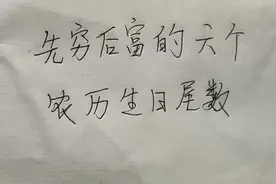 先穷后富的六个
农历生日尾数